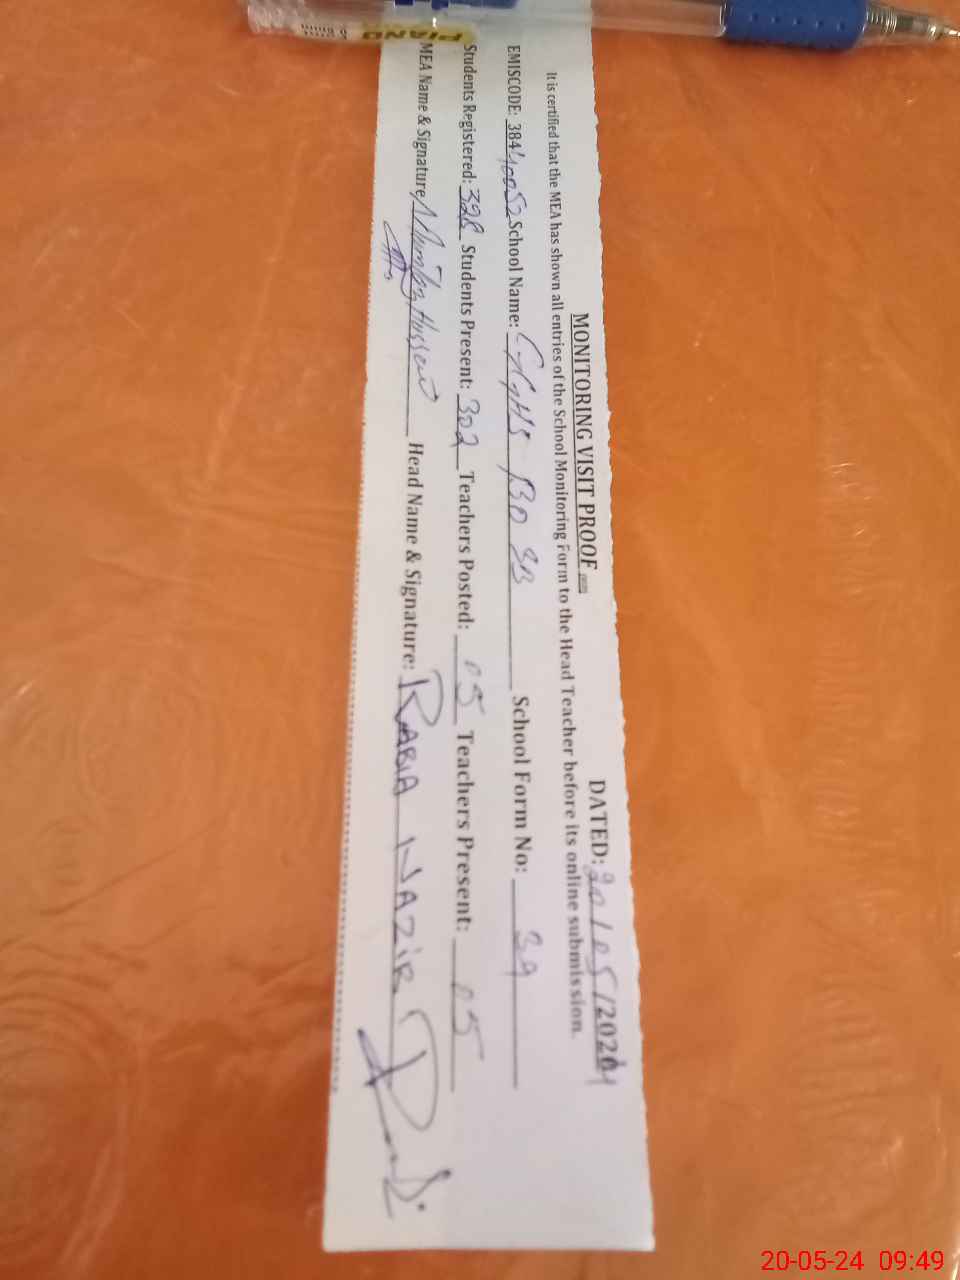 MONITORING VISIT PROOF DATED: 20/05/2024
It is certified that the MEA has shown all entries of the School Monitoring Form to the Head Teacher before its online submission.
EMISCODE: 38440052 School Name: GGHS 130 SB School Form No: 39
Students Registered: 328 Students Present: 302 Teachers Posted: 05 Teachers Present: 05
MEA Name & Signature Hussain Head Name & Signature: RABIA NAZIR
PIANO
20-05-24 09:49